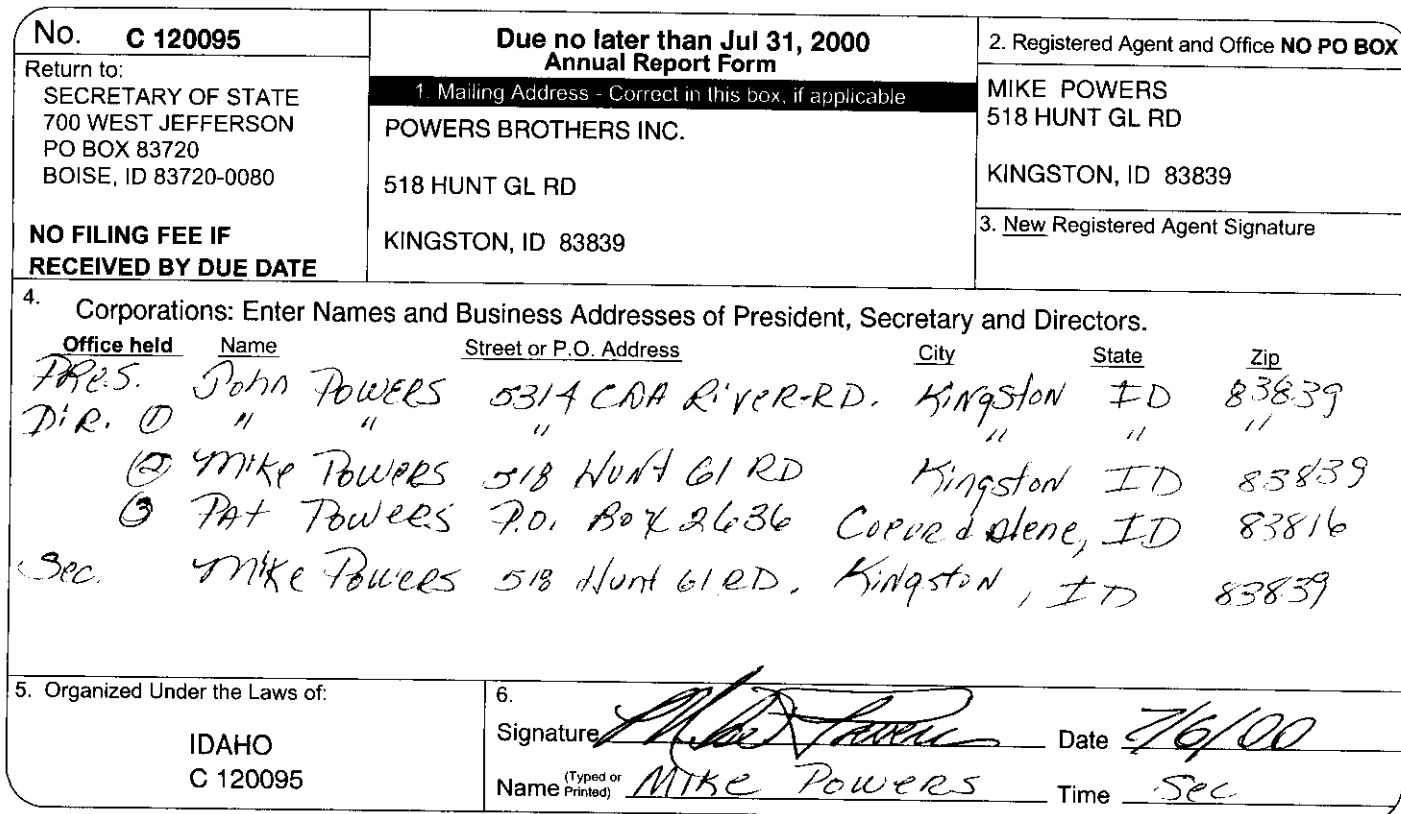 No. C 120095
Return to:
SECRETARY OF STATE
700 WEST JEFFERSON
PO BOX 83720
BOISE, ID 83720-0080
NO FILING FEE IF
RECEIVED BY DUE DATE
Due no later than Jul 31, 2000
Annual Report Form
1. Mailing Address - Correct in this box, if applicable
POWERS BROTHERS INC.
518 HUNT GL RD
KINGSTON, ID 83839
2. Registered Agent and Office NO PO BOX
MIKE POWERS
518 HUNT GL RD
KINGSTON, ID 83839
3. New Registered Agent Signature
4. Corporations: Enter Names and Business Addresses of President, Secretary and Directors.
Office held Name Street or P.O. Address City State Zip
PRES. John POWERS 5314 CDA RiVER-RD. Kingston ID 83839
DiR. ① " " " " " "
② Mike Powers 518 Hunt Gl RD Kingston ID 83839
③ PAT Powers P.O. Box 2636 Coeur d Alene, ID 83816
Sec. Mike Powers 518 Hunt Gl RD. Kingston, ID 83839
5. Organized Under the Laws of:
IDAHO
C 120095
6.
Signature Mike Powers Date 7/6/00
Name (Typed or Printed) Mike Powers Time Sec